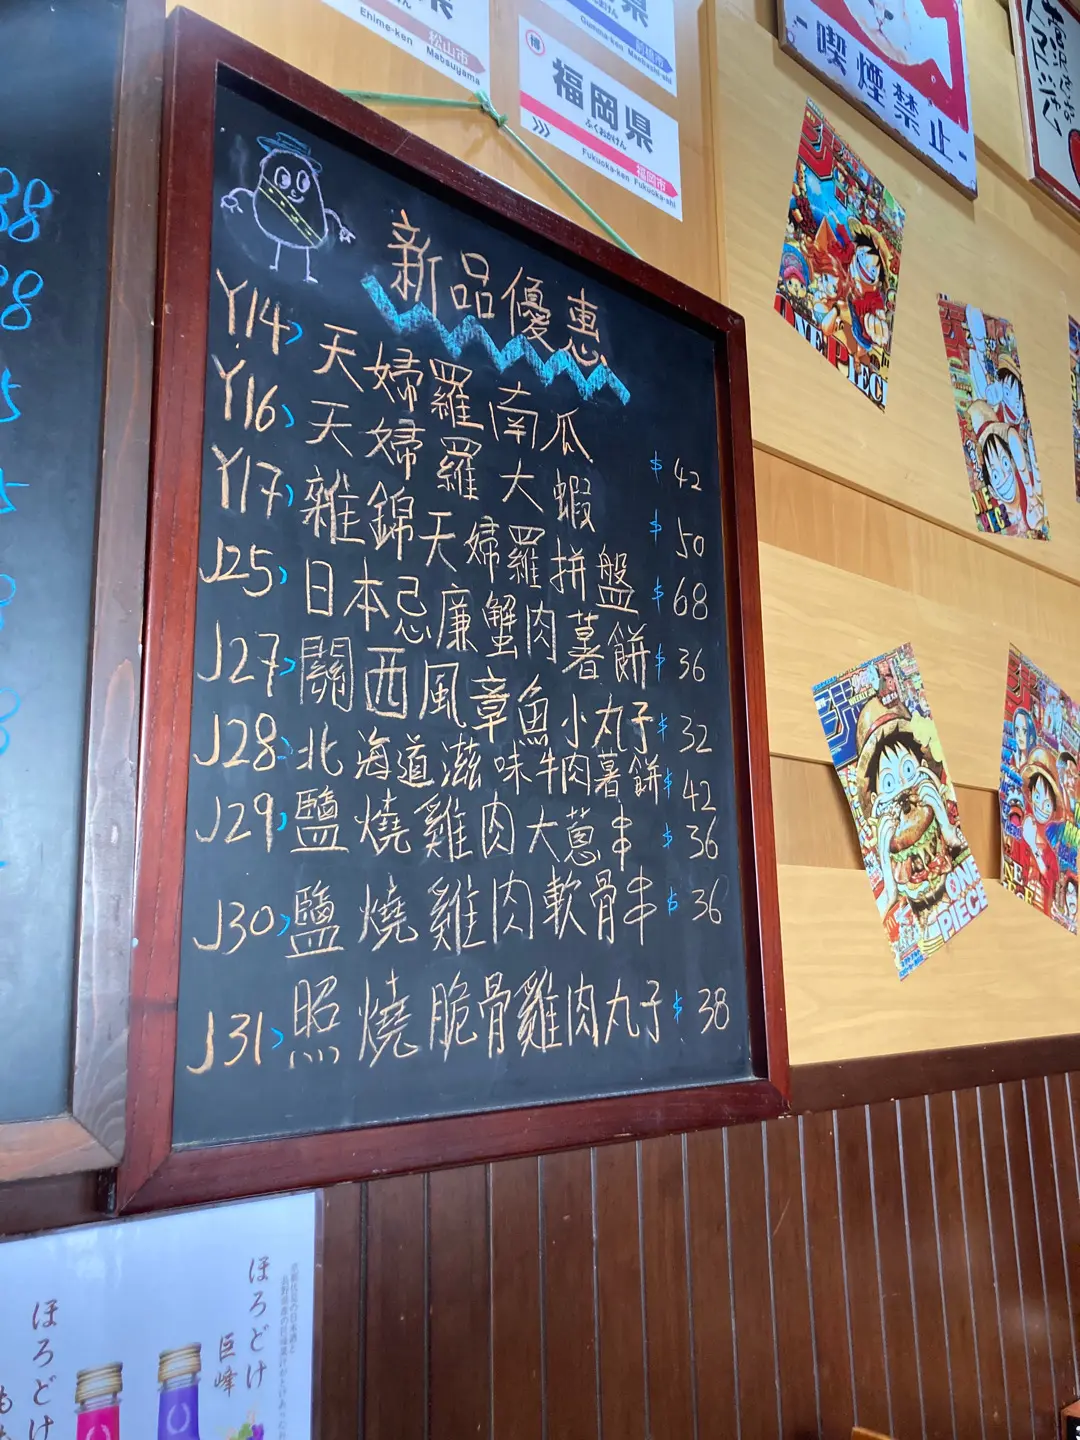 松山市
Ehime-ken Matsuyama
Gunma-ken Maebashi-shi
福岡県
ふくおかけん
Fukuoka-ken Fukuoka-shi
福岡市
-喫煙禁止-
新品優惠
Y14 天婦羅南瓜 $42
Y16 天婦羅大蝦 $50
Y17 雜錦天婦羅拼盤 $68
J25 日本忌廉蟹肉薯餅 $36
J27 關西風章魚小丸子 $32
J28 北海道滋味牛肉薯餅 $42
J29 鹽燒雞肉大蔥串 $36
J30 鹽燒雞肉軟骨串 $36
J31 照燒脆骨雞肉丸子 $38
ONE PIECE
ONE PIECE
ほろどけ
巨峰
ほろどけ